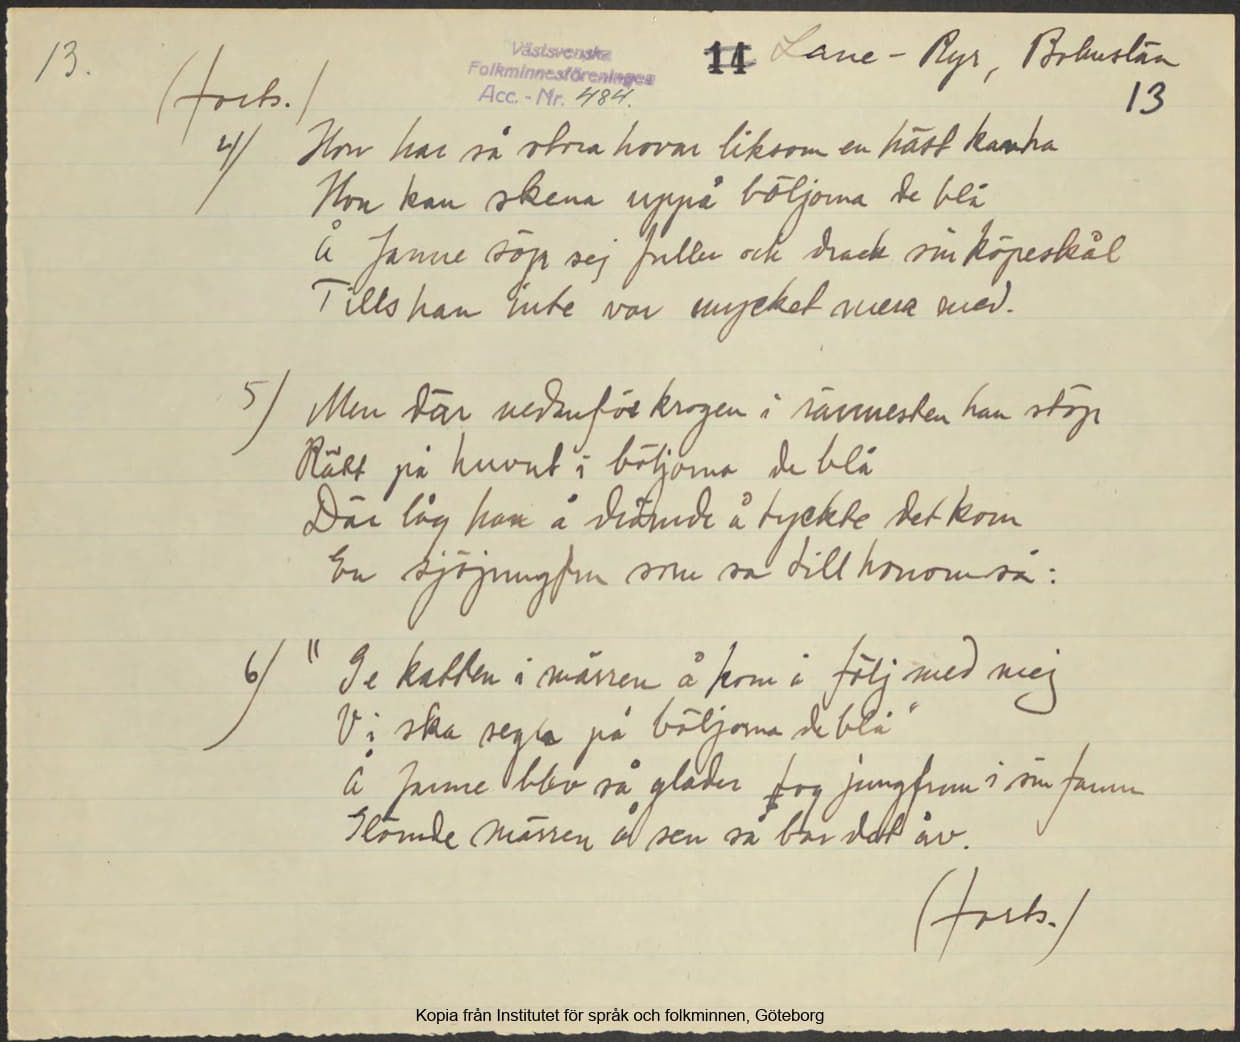 13.
Västsvenska
Folkminnesföreningen
Acc.-Nr. 484.
14 Lane-Ryr, Bohuslän
13
(forts.)
4) Hon har så stora hovar liksom en häst kanha
Hon kan skena uppå böljorna de blå
Å Janne söp sej fuller och drack sin köpeskål
Tills han inte var mycket mera med.
5) Men där nedanför krogen i rännesten han stöp
Rätt på huvut i böljorna de blå
Där låg han å drömde å tyckte det kom
En sjöjungfru som sa till honom så:
6) "Ge katten i märren å kom å följ med mej
Vi ska segla på böljorna de blå"
Å Janne blev så glader tog jungfrun i sin famn
Glömde märren å sen så bar det åv.
(forts.)
Kopia från Institutet för språk och folkminnen, Göteborg